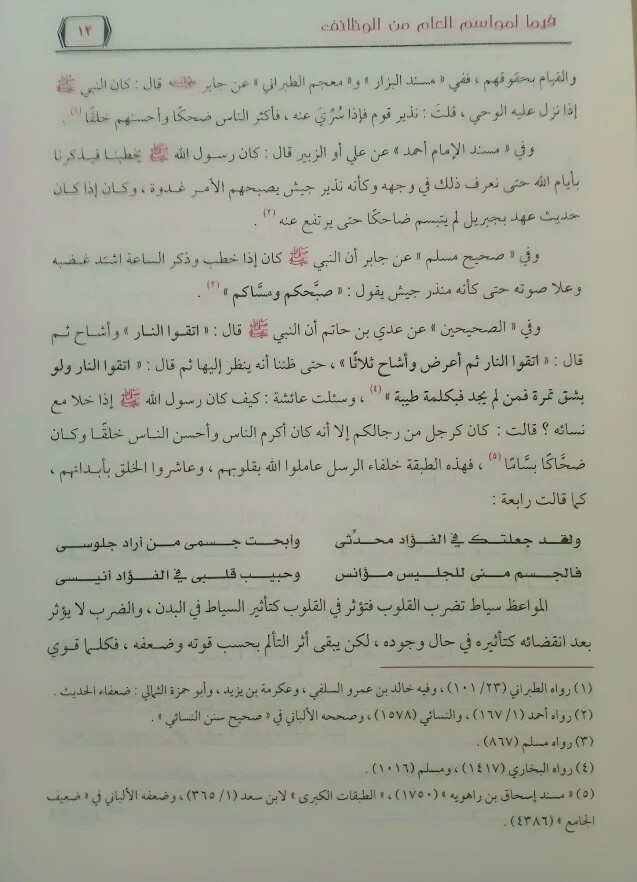 فيما لمواسم العام من الوظائف
١٣
والقيام بحقوقهم ، ففي « مسند البزار » و« معجم الطبراني » عن جابر رضي الله عنه قال : كان النبي ﷺ
إذا نزل عليه الوحي ، قلتَ : نذير قوم فإذا سُرِّيَ عنه ، فأكثر الناس ضحكًا وأحسنهم خلقًا (١) .
وفي « مسند الإمام أحمد » عن علي أو الزبير قال : كان رسول الله ﷺ يخطبنا فيذكرنا
بأيام الله حتى نعرف ذلك في وجهه وكأنه نذير جيش يصبحهم الأمر غدوة ، وكان إذا كان
حديث عهد بجبريل لم يتبسم ضاحكًا حتى يرتفع عنه (٢) .
وفي « صحيح مسلم » عن جابر أن النبي ﷺ كان إذا خطب وذكر الساعة اشتد غضبه
وعلا صوته حتى كأنه منذر جيش يقول : « صبَّحكم ومسَّاكم » (٣) .
وفي « الصحيحين » عن عدي بن حاتم أن النبي ﷺ قال : « اتقوا النار » وأشاح ثم
قال : « اتقوا النار ثم أعرض وأشاح ثلاثًا » ، حتى ظننا أنه ينظر إليها ثم قال : « اتقوا النار ولو
بشق تمرة فمن لم يجد فبكلمة طيبة » (٤) ، وسئلت عائشة : كيف كان رسول الله ﷺ إذا خلا مع
نسائه ؟ قالت : كان كرجل من رجالكم إلا أنه كان أكرم الناس وأحسن الناس خلقًا وكان
ضحَّاكًا بسَّامًا (٥) ، فهذه الطبقة خلفاء الرسل عاملوا الله بقلوبهم ، وعاشروا الخلق بأبدانهم ،
كما قالت رابعة :
ولقد جعلتك في الفؤاد محدِّثي وأبحت جسمي من أراد جلوسي
فالجسم مني للجليس مؤانس وحبيب قلبي في الفؤاد أنيسي
المواعظ سياط تضرب القلوب فتؤثر في القلوب كتأثير السياط في البدن ، والضرب لا يؤثر
بعد انقضائه كتأثيره في حال وجوده ، لكن يبقى أثر التألم بحسب قوته وضعفه ، فكلما قوي
(١) رواه الطبراني (٢٣/ ١٠١) ، وفيه خالد بن عمرو السلفي ، وعكرمة بن يزيد ، وأبو حمزة الثمالي : ضعفاء الحديث .
(٢) رواه أحمد (١/ ١٦٧) ، والنسائي (١٥٧٨) ، وصححه الألباني في « صحيح سنن النسائي » .
(٣) رواه مسلم (٨٦٧) .
(٤) رواه البخاري (١٤١٧) ، ومسلم (١٠١٦) .
(٥) « مسند إسحاق بن راهويه » (١٧٥٠) ، « الطبقات الكبرى » لابن سعد (١/ ٣٦٥) ، وضعفه الألباني في « ضعيف
الجامع » (٤٣٨٦) .